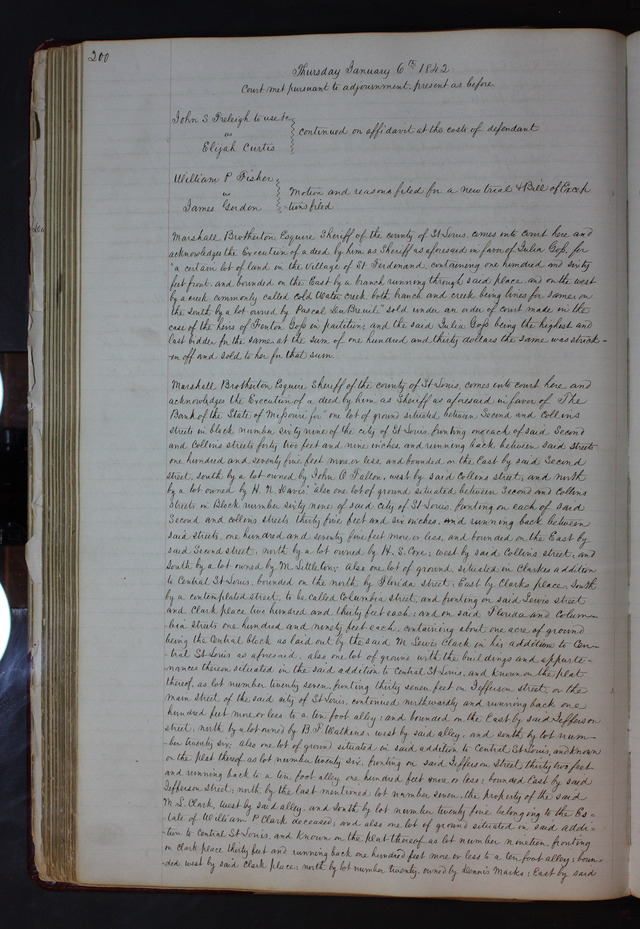 200
Thursday January 6th 1842
Court met pursuant to adjournment, present as before
John S Freleigh to use &c
vs
Elijah Curtis
continued on affidavit at the costs of defendant
William P Fisher
vs
James Gordon
Motion and reasons filed for a new trial & Bill of Excep
tions filed
Marshall Brotherton Esquire Sheriff of the county of St Louis comes into court here and
acknowledges the Execution of a deed by him as Sheriff as aforesaid in favor of Julia Goss, for
"a certain lot of land in the Village of St Ferdinand, containing one hundred and sixty
feet front and bounded on the East by a branch running through said place, and on the west
by a creek commonly called Cold Water creek both branch and creek being lines for same, on
the South by a lot owned by Pascal DuBreuil" sold under an order of court made in the
case of the heirs of Fenton Goss in partition; and the said Julia Goss being the highest and
last bidder for the same, at the sum of one hundred and thirty dollars the same was strick-
en off and sold to her for that sum.
Marshall Brotherton, Esquire Sheriff of the county of St Louis, comes into court here and
acknowledges the Execution of a deed by him as Sheriff as aforesaid in favor of The
Bank of the State of Missouri for "one lot of ground situated between Second and Collins
streets in block number sixty nine of the city of St Louis, fronting on each of said Second
and Collins streets forty two feet and nine inches, and running back between said streets
one hundred and seventy five feet more or less, and bounded on the East by said Second
street, South by a lot owned by John O Fallon, west by said Collins street, and north
by a lot owned by H. N. Davis; also one lot of ground situated between Second and Collins
streets in Block number sixty none of said city of St Louis, fronting on each of said
Second and Collins streets thirty five feet and six inches, and running back between
said streets, one hundred and seventy five feet more or less, and bounded on the East by
said Second street; north by a lot owned by H. S. Coxe; west by said Collins street, and
South by a lot owned by M. Littleton; also one lot of ground, situated in Clarks addition
to Central St Louis, bounded on the north by Florida street, East by Clarks place, South
by a contemplated street, to be called Columbia street, and fronting on said Lewis street
and Clark place two hundred and thirty feet each; and on said Florida and Colum-
bia streets one hundred and ninety feet each, containing about one acre of ground
being the Central block as laid out by the said M. Lewis Clark in his addition to Cen-
tral St Louis as aforesaid, also one lot of ground with the buildings and appurte-
nances thereon situated in the said addition to Central St Louis, and known on the plat
thereof, as lot number twenty seven, fronting thirty seven feet on Jefferson street, or the
main street of the said city of St Louis, continued northwardly and running back one
hundred feet more or less to a ten foot alley; and bounded on the East by said Jefferson
street, north by a lot owned by B. F. Watkins; west by said alley, and south by lot num-
-ber twenty six; also one lot of ground situated in said addition to Central St Louis, and known
on the plat thereof as lot number twenty six, fronting on said Jefferson street, thirty two feet
and running back to a ten foot alley one hundred feet more or less; bounded East by said
Jefferson street; north by the last mentioned lot number seven, the property of the said
M L. Clark, west by said alley, and South by lot number twenty five belonging to the Es-
tate of William P Clark deceased; and also one lot of ground situated in said addi-
tion to Central St Louis, and known on the plat thereof as lot number nineteen, fronting
on Clark place thirty feet and running back one hundred feet more or less to a ten foot alley; boun-
ded west by said Clark place; north by lot number twenty, owned by Dennis Marks; East by said